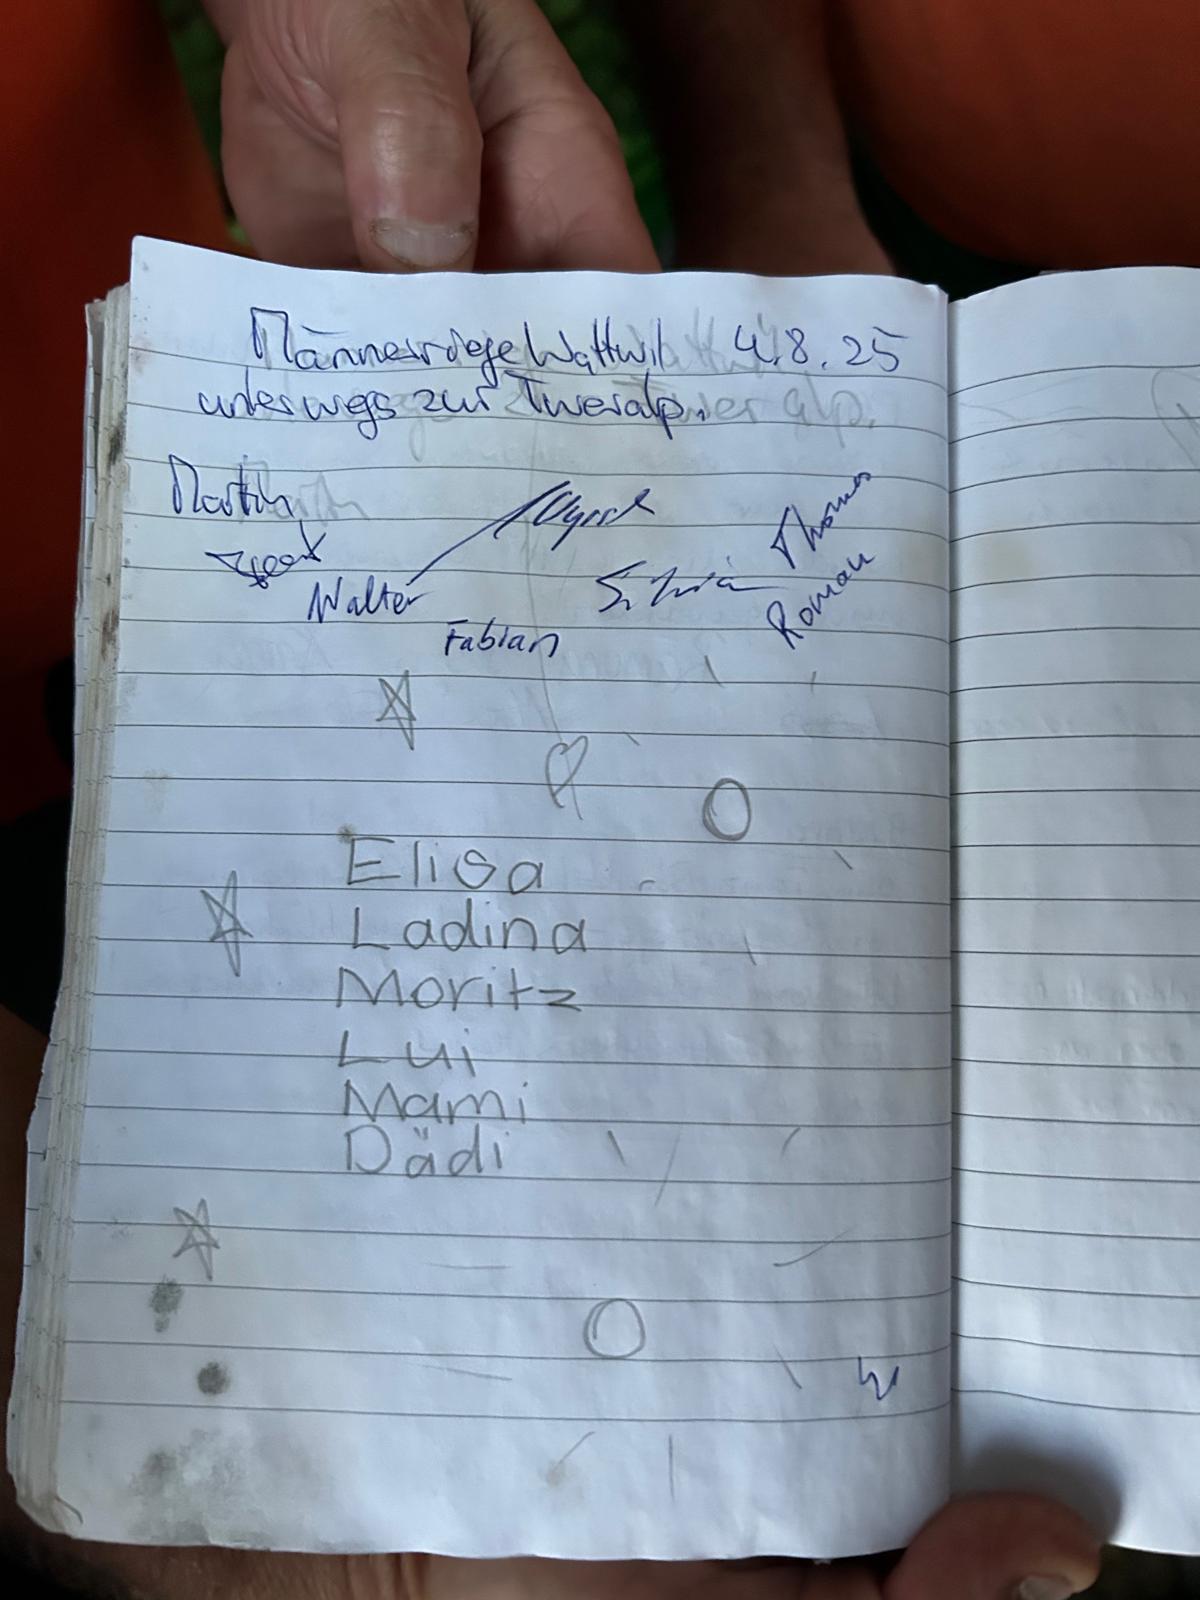 Männerriege Wattwil 4.8.25
unterwegs zur Tweralp.
Martin
Thomas
Walter
Silvia
Roman
Fabian
Elisa
Ladina
Moritz
Lui
Mami
Dädi